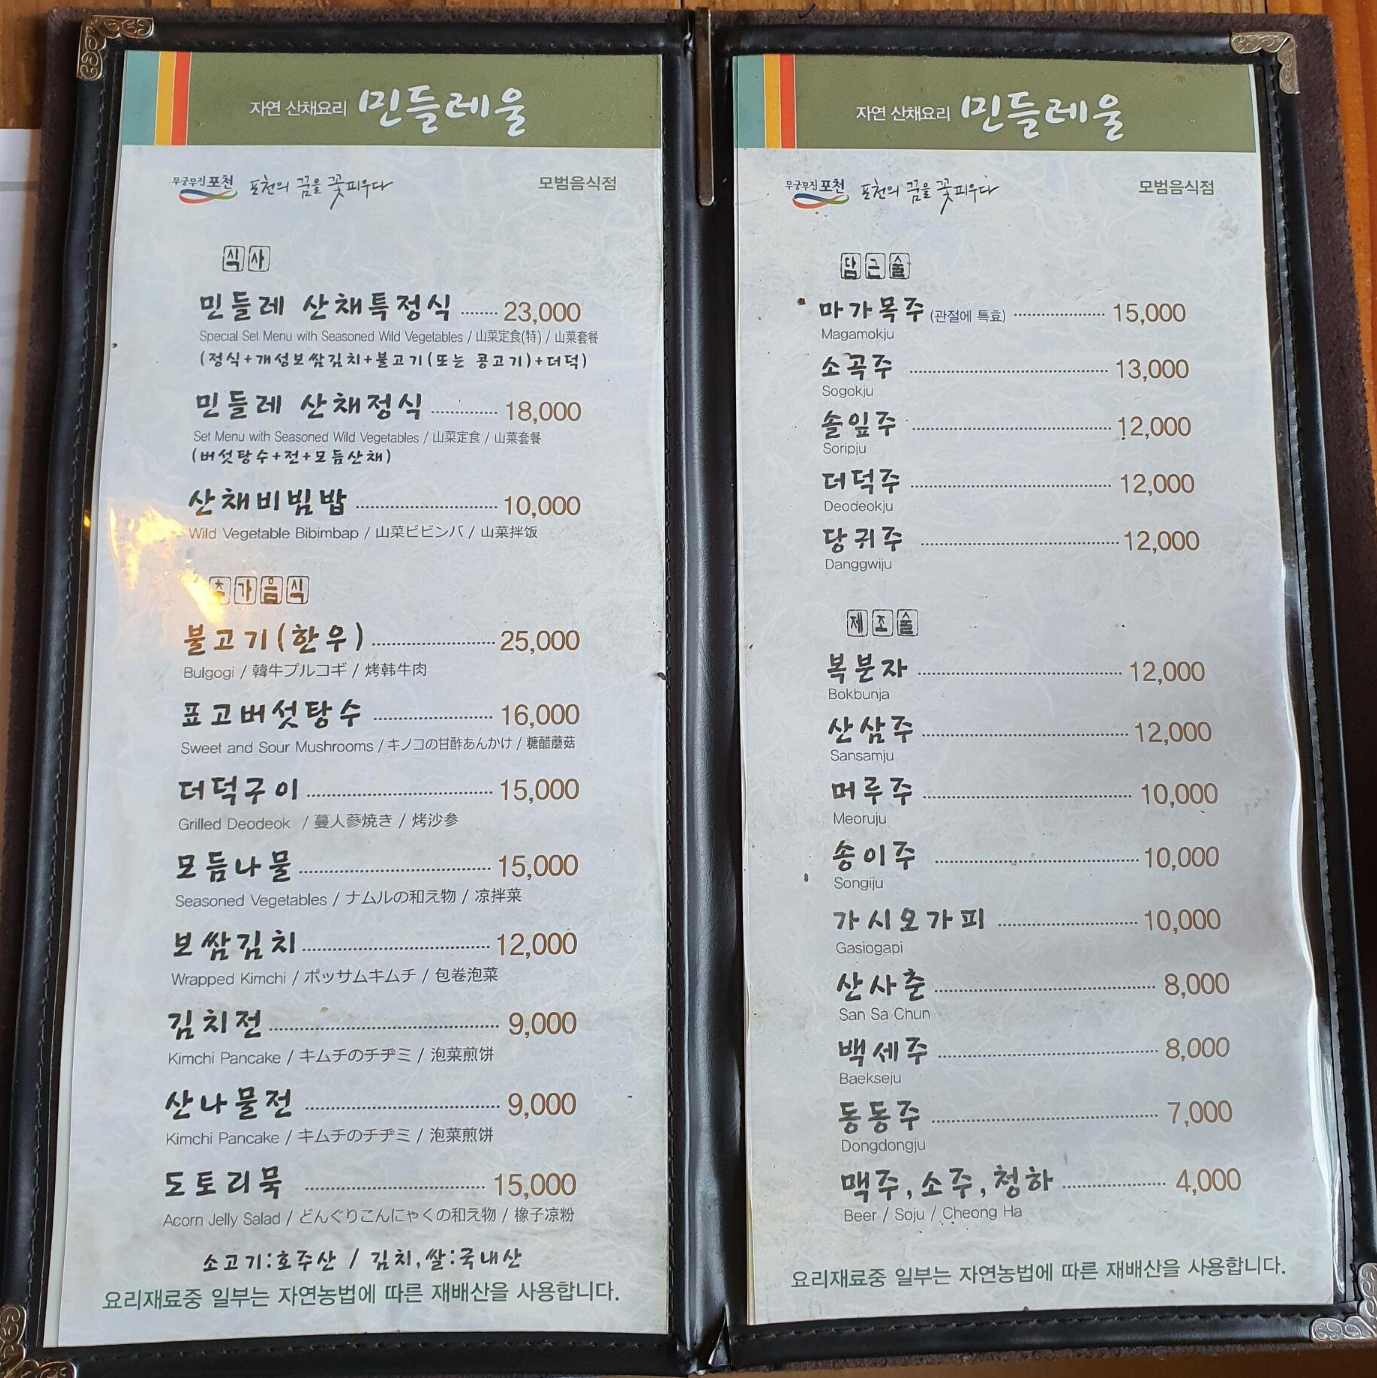 자연 산채요리 민들레울
무궁무진 포천 포천의 꿈을 꽃피우다 모범음식점
식사
민들레 산채특정식 ........ 23,000
Special Set Menu with Seasoned Wild Vegetables / 山菜定食(特) / 山菜套餐
(정식+개성보쌈김치+불고기(또는 콩고기)+더덕)
민들레 산채정식 ........ 18,000
Set Menu with Seasoned Wild Vegetables / 山菜定食 / 山菜套餐
(버섯탕수+전+모듬산채)
산채비빔밥 ........ 10,000
Wild Vegetable Bibimbap / 山菜ビビンバ / 山菜拌饭
추가음식
불고기(한우) ........ 25,000
Bulgogi / 韓牛プルコギ / 烤韩牛肉
표고버섯탕수 ........ 16,000
Sweet and Sour Mushrooms / キノコの甘酢あんかけ / 糖醋蘑菇
더덕구이 ........ 15,000
Grilled Deodeok / 蔓人蔘焼き / 烤沙参
모듬나물 ........ 15,000
Seasoned Vegetables / ナムルの和え物 / 凉拌菜
보쌈김치 ........ 12,000
Wrapped Kimchi / ポッサムキムチ / 包卷泡菜
김치전 ........ 9,000
Kimchi Pancake / キムチのチヂミ / 泡菜煎饼
산나물전 ........ 9,000
Kimchi Pancake / キムチのチヂミ / 泡菜煎饼
도토리묵 ........ 15,000
Acorn Jelly Salad / どんぐりこんにゃくの和え物 / 橡子凉粉
소고기:호주산 / 김치,쌀:국내산
요리재료중 일부는 자연농법에 따른 재배산을 사용합니다.
자연 산채요리 민들레울
무궁무진 포천 포천의 꿈을 꽃피우다 모범음식점
담근술
마가목주 (관절에 특효) ........ 15,000
Magamokju
소곡주 ........ 13,000
Sogokju
솔잎주 ........ 12,000
Soripju
더덕주 ........ 12,000
Deodeokju
당귀주 ........ 12,000
Danggwiju
제조술
복분자 ........ 12,000
Bokbunja
산삼주 ........ 12,000
Sansamju
머루주 ........ 10,000
Meoruju
송이주 ........ 10,000
Songiju
가시오가피 ........ 10,000
Gasiogapi
산사춘 ........ 8,000
San Sa Chun
백세주 ........ 8,000
Baekseju
동동주 ........ 7,000
Dongdongju
맥주,소주,청하 ........ 4,000
Beer / Soju / Cheong Ha
요리재료중 일부는 자연농법에 따른 재배산을 사용합니다.